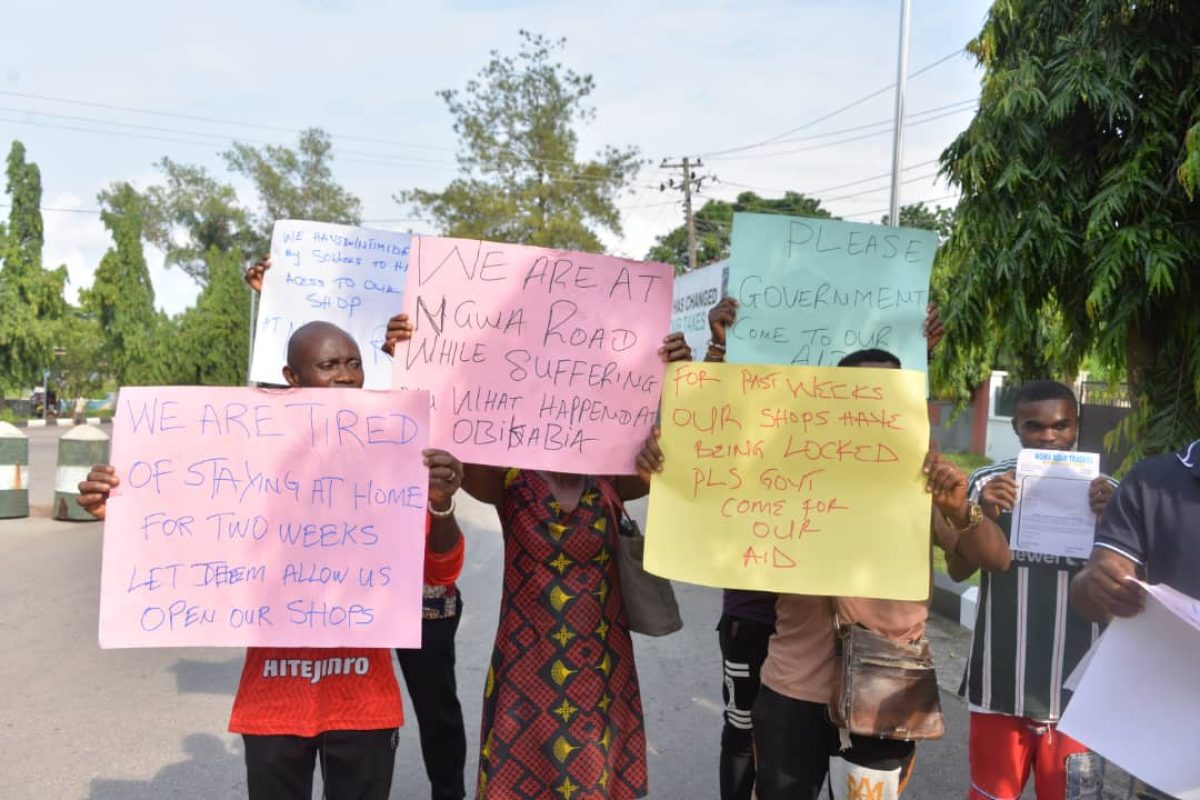 WE HAVE
BY SOLDIERS TO
ACESS TO OUR
SHOP
AT
WE ARE AT
NGWA ROAD
WHILE SUFFERING
WHAT HAPPEND AT
OBIKABIA
HAS CHANGED
TAXES
PLEASE
GOVERNMENT
COME TO OUR
AID
WE ARE TIRED
OF STAYING AT HOME
FOR TWO WEEKS
LET THEM ALLOW US
OPEN OUR SHOPS
FOR PAST WEEKS
OUR SHOPS HAVE
BEING LOCKED
PLS GOVT
COME FOR
OUR
AID
NGWA ROAD TRADERS
HITEJINRO